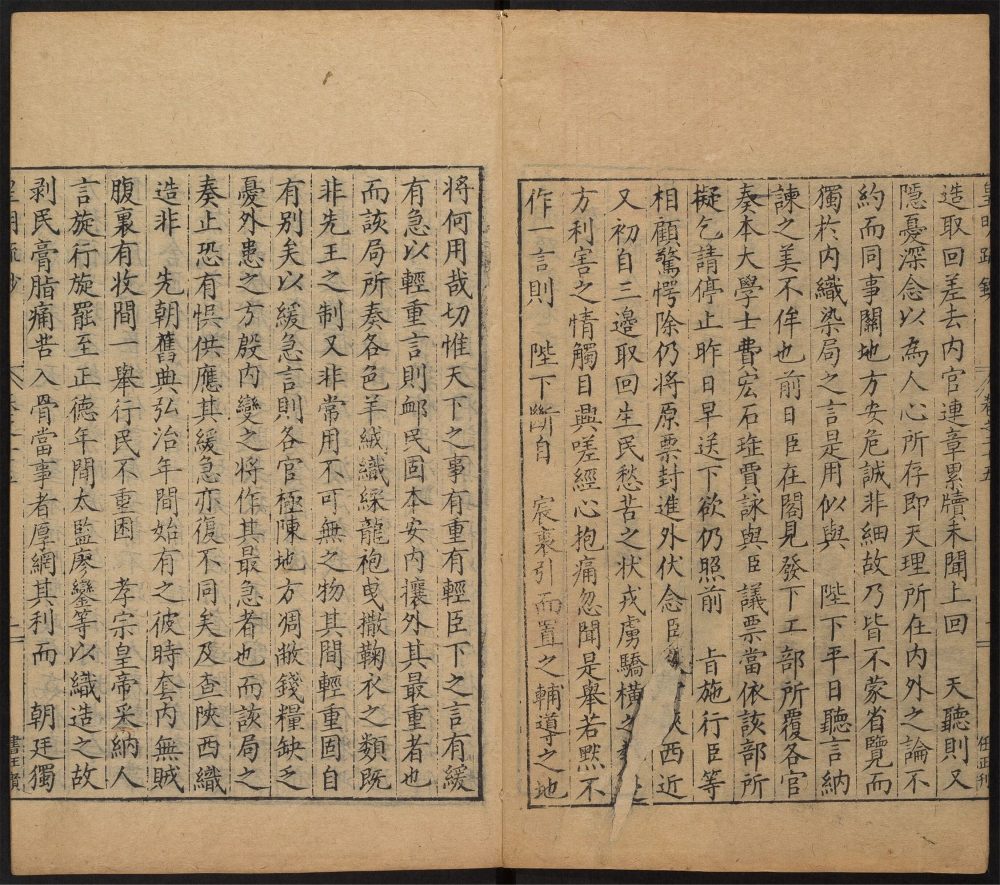 造取回差去内官連章累牘未聞上回　天聽則又
隱憂深念以為人心所存即天理所在内外之論不
約而同事關地方安危誠非細故乃皆不蒙省覽而
獨於内織染局之言是用似與　陛下平日聽言納
諫之美不侔也前日臣在閣見發下工部所覆各官
奏本大學士費宏石珤賈詠與臣議票當依該部所
擬乞請停止昨日早送下欲仍照前　旨施行臣等
相顧驚愕除仍将原票封進外伏念臣陝西近
又初自三邊取回生民愁苦之状戎虜驕横之
方利害之情觸目興嗟經心抱痛忽聞是舉若黙不
作一言則　陛下斷自　宸衷引而置之輔導之地
將何用哉切惟天下之事有重有輕臣下之言有緩
有急以輕重言則䘏民固本安内攘外其最重者也
而該局所奏各色羊絨織綵龍袍曳撒鞠衣之類既
非先王之制又非常用不可無之物其間輕重固自
有别矣以緩急言則各官極陳地方凋敝錢糧缺乏
憂外患之方殷内變之将作其最急者也而該局之
奏止恐有悮供應其緩急亦復不同矣及查陝西織
造非　先朝舊典弘治年間始有之彼時套内無賊
腹裏有收間一舉行民不重困　孝宗皇帝采納人
言旋行旋罷至正德年間太監廖鑾等以織造之故
剥民膏脂痛苦入骨當事者厚網其利而　朝廷獨